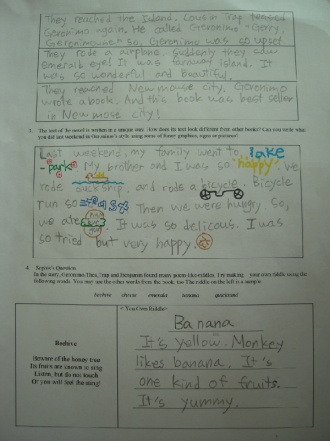 They reached the Island. Cousin Trap teased
Geronimo again. He called Geronimo "Gerry,
Geronimouse" so, Geronimo was so upset
They rode a airplane. Suddenly they saw
emerald eye! It was faraway island. It
was so wonderful and beautiful.
They reached New mouse city. Geronimo
wrote a book. And this book was best seller
in New mouse city!
3. The text of the novel is written in a unique way. How does its text look different from other books? Can you write what
you did last weekend in this unique's style using some of those graphics, signs or pictures?
Last weekend, my family went to lake
park. My brother and I was so happy. We
rode duck ship, and rode a bicycle. Bicycle
run so
Then we were hungry so,
we ate
It was so delicous. I was
so tried but very happy.
4. Surprise Question
In the story, Geronimo, Thea, Trap and Benjamin found many poems like riddles. Try making your own riddle using the
following words. You may use the other words from the book, too. The riddle on the left is a sample.
beehive cheese emeralds banana
Beehive
Beware of the honey tree
Its fruits are known to sting
Listen, but do not touch
Or you will feel the sting!
< You Own Riddle>
Banana
It's yellow. Monkey
likes banana. It's
one kind of fruits.
It's yummy.